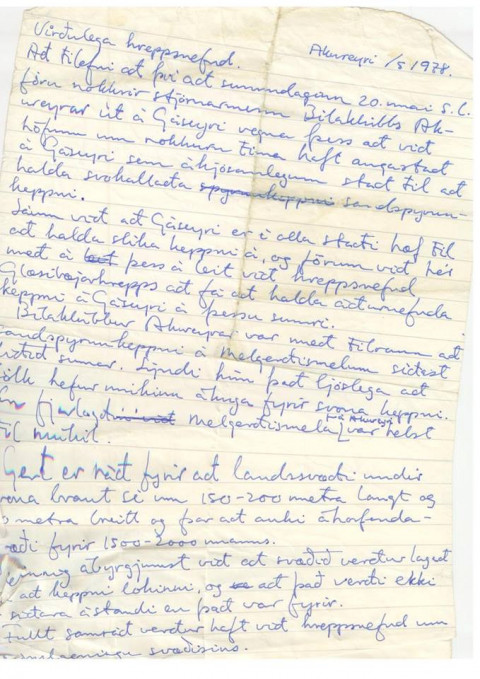 Akureyri /5 1978.
Virðulega hreppsnefnd.
Að tilefni að því að sunnudaginn 20. maí s.l.
fóru nokkrir stjórnarmenn Bílaklúbbs Ak-
ureyrar út á Gáseyri vegna þess að við
höfum um nokkurn tíma haft augastað
á Gáseyri sem ákjósanlegum stað til að
halda svokallaða spyrnukeppni sandspyrnu-
keppni.
Sáum við að Gáseyri er í alla staði hæf til
að halda slíka keppni á, og förum við hér
með á þess á leit við hreppsnefnd
Glæsibæjarhrepps að fá að halda áðurnefnda
keppni á Gáseyri á þessu sumri.
Bílaklúbbur Akureyrar var með tilraun að
sandspyrnukeppni á melgerðismelum síðast
liðið sumar. Sýndi hún það ljóslega að
fólk hefur mikinn áhuga fyrir svona keppni.
en fjarlægð melgerðismela frá Akureyri var helst
til mikil.
Gert er ráð fyrir að landssvæði undir
svona braut sé um 150-200 metra langt og
metra breitt og þar að auki áhorfenda-
svæði fyrir 1500-2000 manns.
Einnig ábyrgjumst við að svæðið verður lagað
að keppni lokinni, og að það verði ekki
í síðara ástandi en það var fyrir.
Fullt samráð verður haft við hreppsnefnd um
svæðisins.